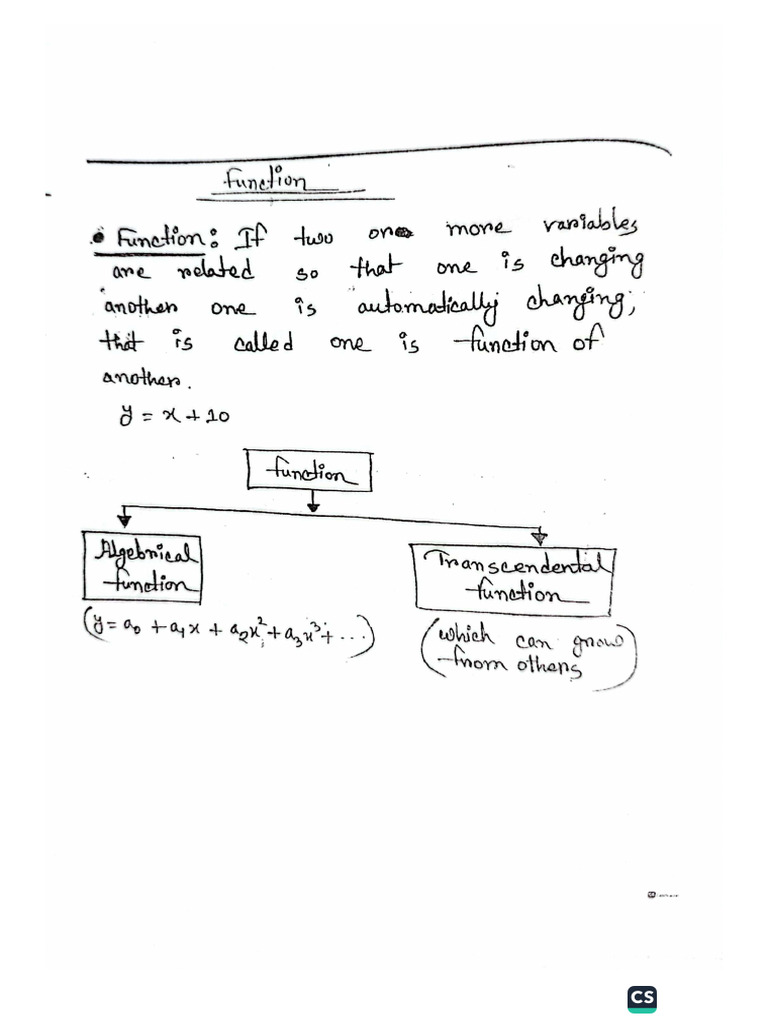 Function
• Function: If two or more variables
are related so that one is changing
another one is automatically changing,
that is called one is function of
another.
y = x + 10
function
Algebrical
function
Transcendental
function
(y = a₀ + a₁x + a₂x² + a₃x³ + ...)
(which can grow
from others)
CS